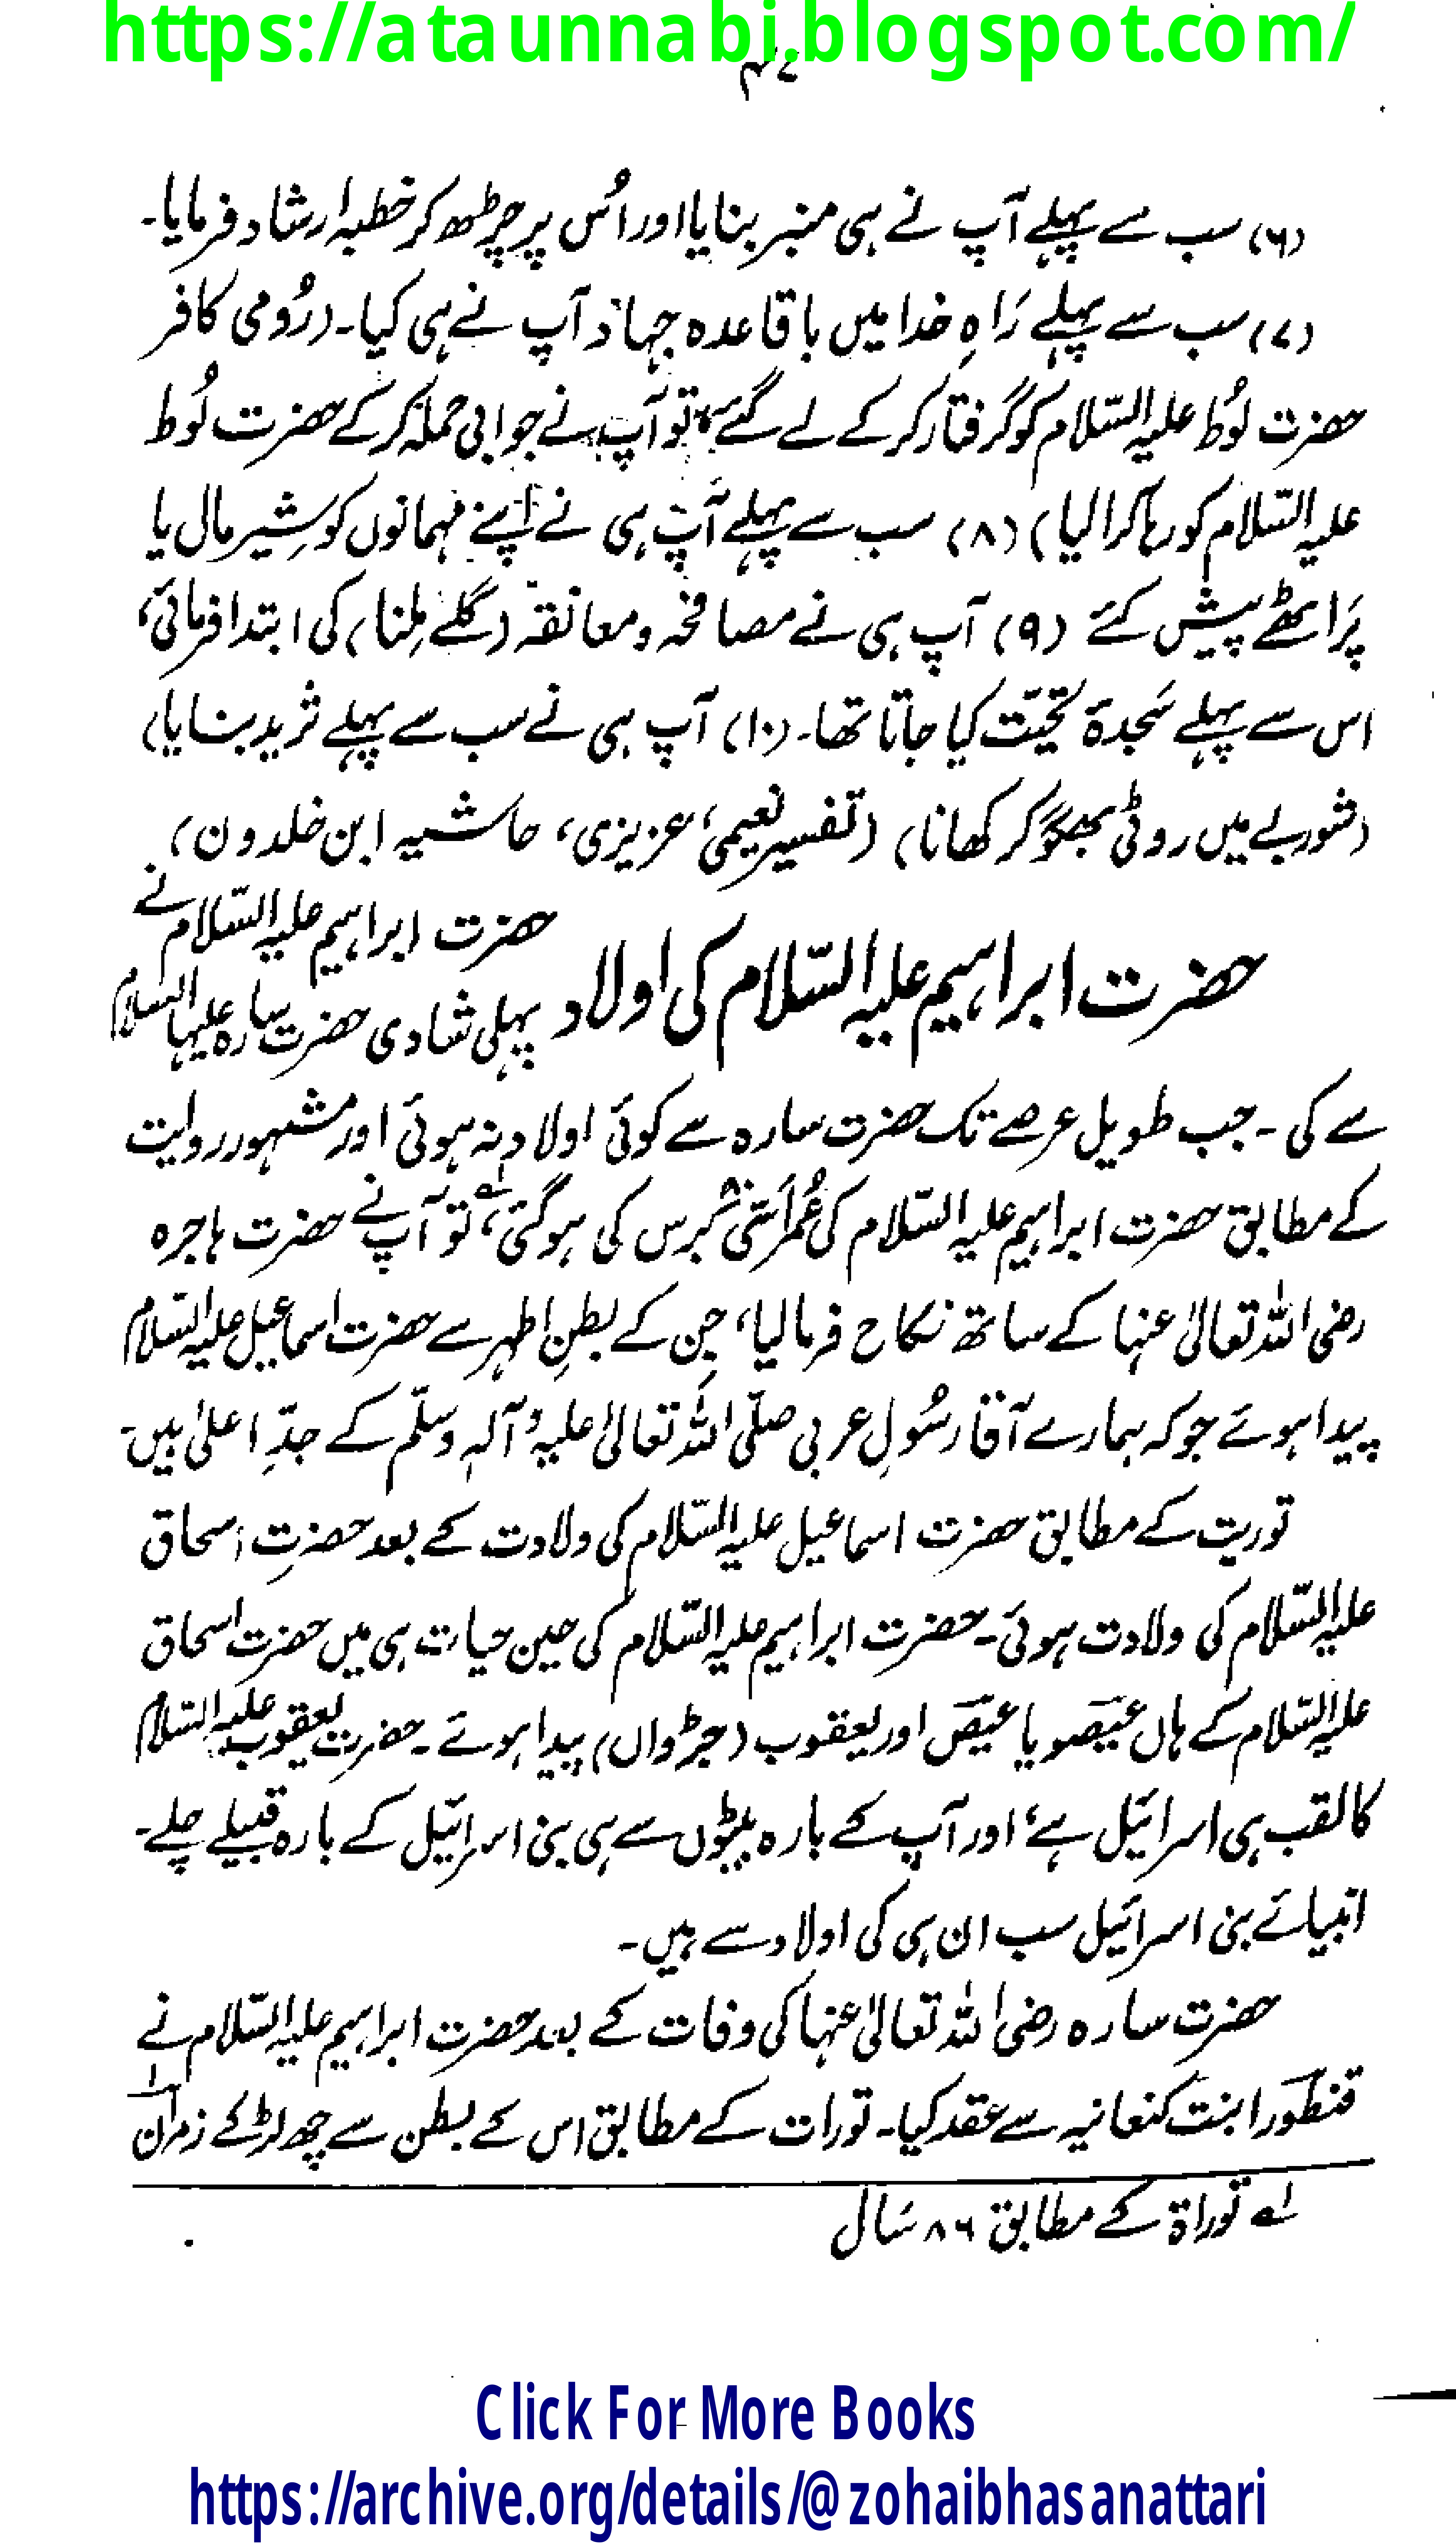 https://ataunnabi.blogspot.com/
۴۷
(۶) سب سے پہلے آپ نے ہی منبر بنایا اور اُس پر چڑھ کر خطبہ ارشاد فرمایا۔
(۷) سب سے پہلے رَاہِ خدا میں باقاعدہ جہاد آپ نے ہی کیا۔ (رُومی کافر
حضرت لُوط علیہ السّلام کو گرفتار کر کے لے گئے، تو آپ نے جوابی حملہ کر کے حضرت لُوط
علیہ السّلام کو رہا کرا لیا) (۸) سب سے پہلے آپ ہی نے اپنے مہمانوں کو شِیر مال یا
پَراٹھے پیش کئے (۹) آپ ہی نے مصافحہ و معانقہ (گلے مِلنا) کی ابتدا فرمائی،
اس سے پہلے سَجدۂ تحیّت کیا جاتا تھا۔ (۱۰) آپ ہی نے سب سے پہلے ثُرید بنایا)
(شوربے میں روٹی بھگو کر کھانا) (تفسیر نعیمی، عزیزی، حاشیہ ابن خلدون)
حضرت ابراہیم علیہ السّلام کی اولاد
حضرت ابراہیم علیہ السّلام نے
پہلی شادی حضرت سارہ علیہا السلام
سے کی ۔ جب طویل عرصے تک حضرت سارہ سے کوئی اولاد نہ ہوئی اور مشہور روایت
کے مطابق حضرت ابراہیم علیہ السّلام کی عُمر اَسّی ۸۰ برس کی ہوگئی،؎۱ تو آپ نے حضرت ہاجرہ
رضی اللہ تعالیٰ عنہا کے ساتھ نکاح فرما لیا، جن کے بطنِ اطہر سے حضرت اسماعیل علیہ السّلام
پیدا ہوئے جو کہ ہمارے آقا رسُولِ عربی صلّی اللہ تعالیٰ علیہ وآلہٖ وسلّم کے جدِّ اعلیٰ ہیں۔
توریت کے مطابق حضرت اسماعیل علیہ السّلام کی ولادت کے بعد حضرتِ اسحاق
علیہ السّلام کی ولادت ہوئی۔ حضرت ابراہیم علیہ السّلام کی حین حیات ہی میں حضرت اسحاق
علیہ السّلام کے ہاں عیصو یا عیص اور یعقوب (جڑواں) پیدا ہوئے ۔ حضرت یعقوب علیہ السّلام
کا لقب ہی اسرائیل ہے، اور آپ کے بارہ بیٹوں سے ہی بنی اسرائیل کے بارہ قبیلے چلے۔
انبیائے بنی اسرائیل سب ان ہی کی اولاد سے ہیں۔
حضرت سارہ رضی اللہ تعالیٰ عنہا کی وفات کے بعد حضرت ابراہیم علیہ السّلام نے
قنطورا بنت کنعانیہ سے عقد کیا۔ تورات کے مطابق اس کے بطن سے چھ لڑکے زمران
؎۱ توراۃ کے مطابق ۸۶ سَال
Click For More Books
https://archive.org/details/@zohaibhasanattari